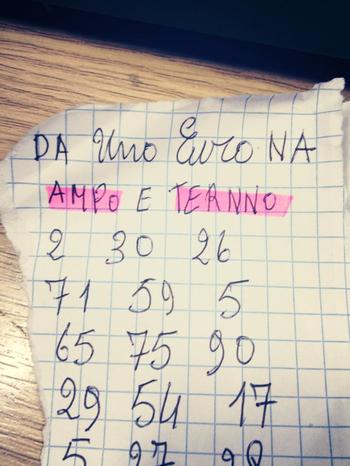 DA Uno Euro NA
AMPO E TERNNO
2 30 26
71 59 5
65 75 90
29 54 17
5